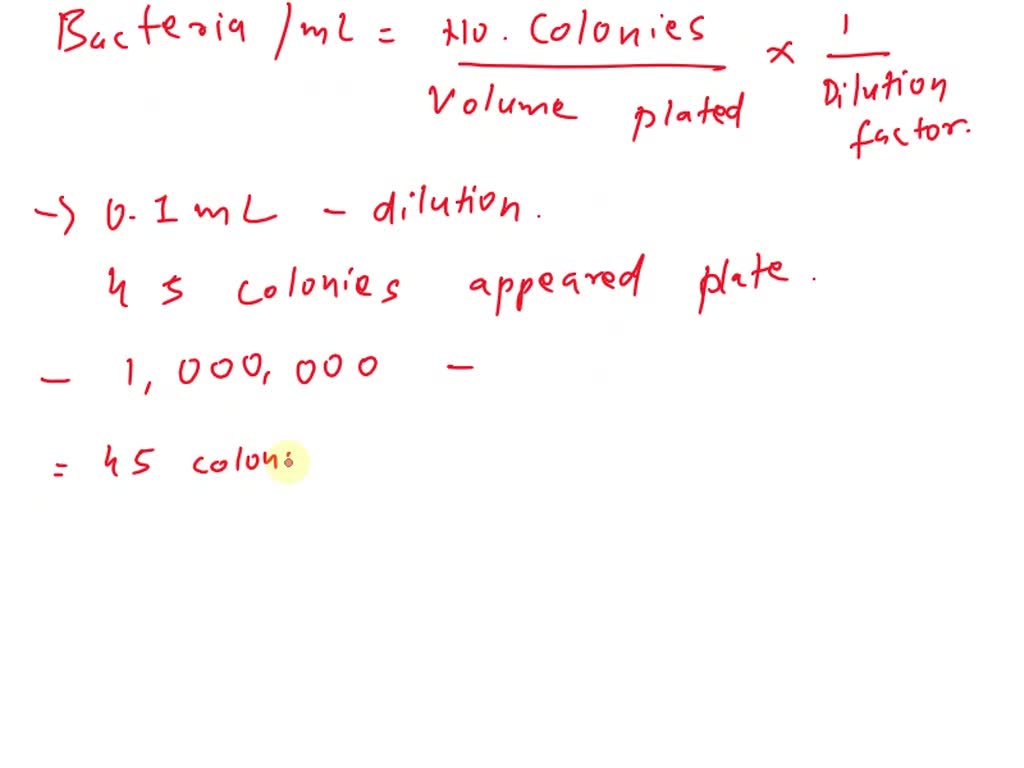 Bacteria /mL = No. Colonies / Volume plated × 1 / Dilution factor.
→ 0.1 mL - dilution.
45 colonies appeared plate.
- 1,000,000 -
= 45 coloni